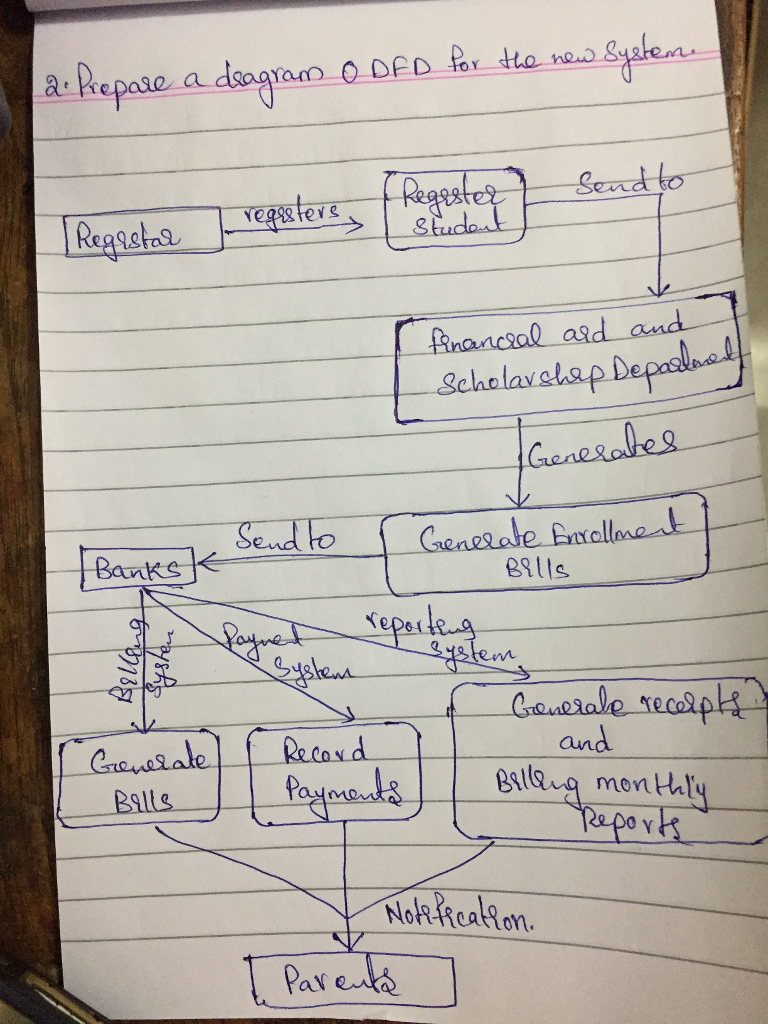 2. Prepare a diagram 0 DFD for the new System.
Registar
registers
Register
Student
Send to
financial aid and
Scholarship Department
Generates
Generate Enrollment
Bills
Send to
Banks
Billing
System
Paymet
System
reporting
System
Generate
Bills
Record
Payments
Generate receipts
and
Billing monthly
Reports
Notification.
Parents